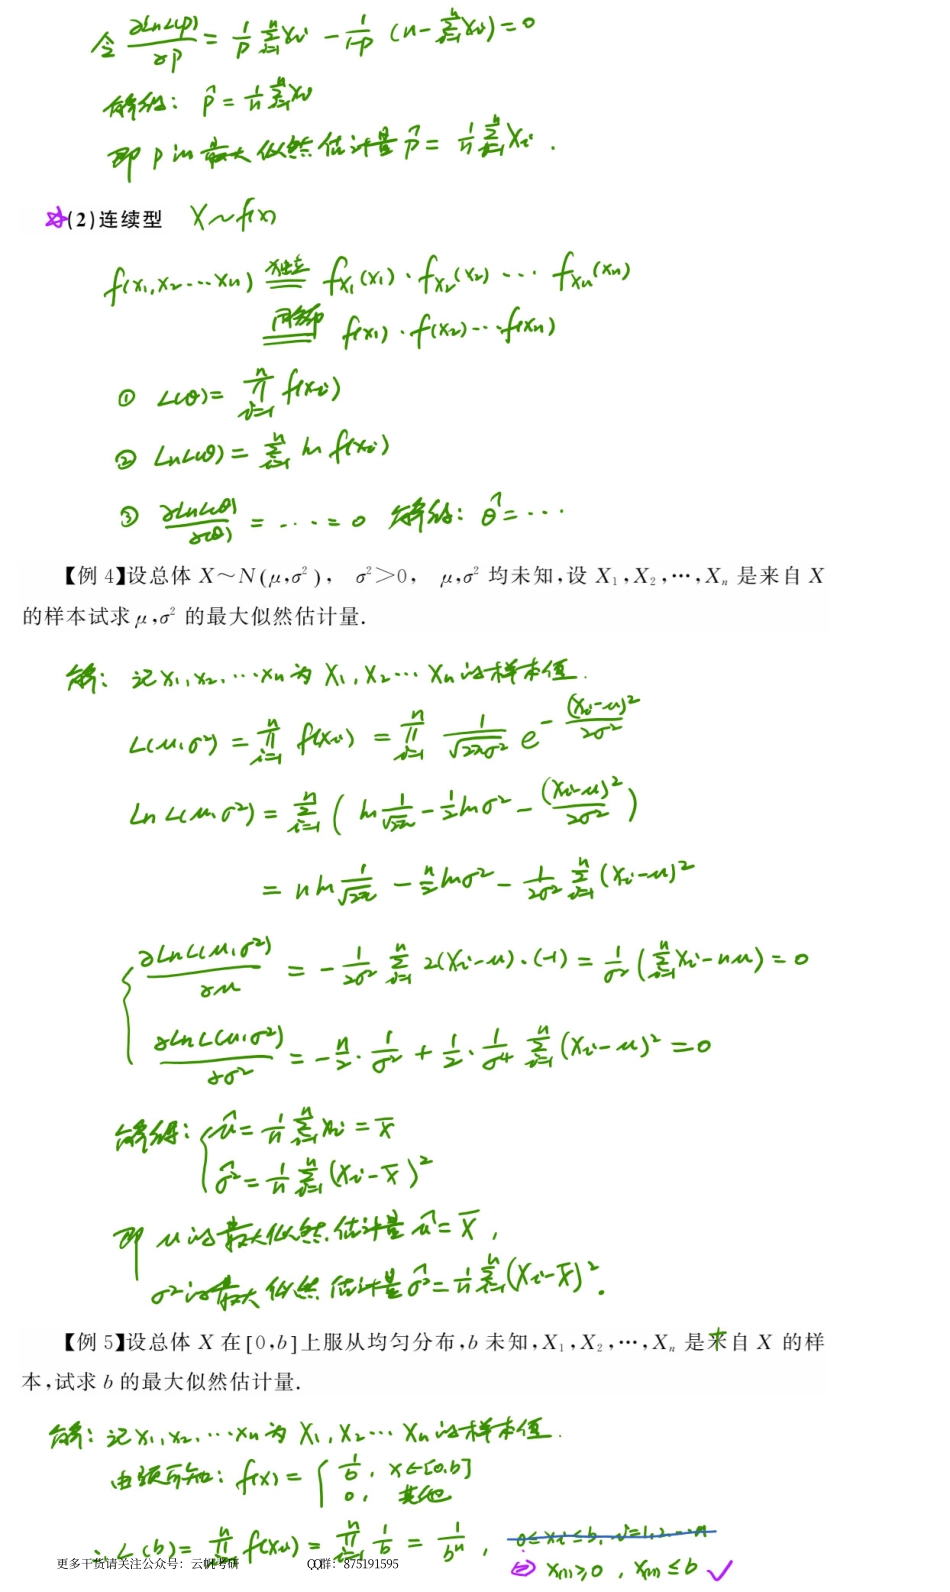 令 ∂lnL(p)/∂p = 1/p ∑_{i=1}^{n} xi − 1/(1-p) (n − ∑_{i=1}^{n} xi) = 0
解得: p̂ = 1/n ∑_{i=1}^{n} xi
即 p 的最大似然估计量 p̂ = 1/n ∑_{i=1}^{n} Xi .
(2)连续型 X~f(x)
f(x₁,x₂…xn) 独立 f_{X₁}(x₁)·f_{X₂}(x₂)…f_{Xn}(xn)
同分布 f(x₁)·f(x₂)…f(xn)
① L(θ) = ∏_{i=1}^{n} f(xi)
② lnL(θ) = ∑_{i=1}^{n} ln f(xi)
③ ∂lnL(θ)/∂(θ) = ‥‥ = 0 解得: θ̂ = …
【例 4】设总体 X~N(μ,σ²), σ²>0, μ,σ² 均未知,设 X₁,X₂,…,Xₙ 是来自 X
的样本试求 μ,σ² 的最大似然估计量.
解: 记 x₁,x₂,…xn 为 X₁,X₂…Xn 的样本值.
L(μ,σ²) = ∏_{i=1}^{n} f(xi) = ∏_{i=1}^{n} 1/√(2πσ²) e^{−(xi−μ)²/2σ²}
ln L(μ,σ²) = ∑_{i=1}^{n} ( ln 1/√2π − 1/2 lnσ² − (xi−μ)²/2σ² )
= n ln 1/√2π − n/2 lnσ² − 1/2σ² ∑_{i=1}^{n} (xi−μ)²
∂lnL(μ,σ²)/∂μ = − 1/2σ² ∑_{i=1}^{n} 2(xi−μ)·(−1) = 1/σ² (∑_{i=1}^{n} xi − nμ) = 0
∂lnL(μ,σ²)/∂σ² = − n/2 · 1/σ² + 1/2 · 1/σ⁴ ∑_{i=1}^{n} (xi−μ)² = 0
解得: μ̂ = 1/n ∑_{i=1}^{n} xi = x̄
σ̂² = 1/n ∑_{i=1}^{n} (xi−x̄)²
即 μ 的最大似然估计量 μ̂ = X̄ ,
σ² 的最大似然估计量 σ̂² = 1/n ∑_{i=1}^{n} (Xi−X̄)² .
【例 5】设总体 X 在[0,b]上服从均匀分布,b 未知,X₁,X₂,…,Xₙ 是来自 X 的样
本,试求 b 的最大似然估计量.
解: 记 x₁,x₂,…xn 为 X₁,X₂…Xn 的样本值.
由题可知: f(x) = { 1/b , x∈[0,b]
0 , 其他
∴ L(b) = ∏_{i=1}^{n} f(xi) = ∏_{i=1}^{n} 1/b = 1/bⁿ , 0≤xi≤b, i=1,2…n
x₍₁₎≥0 , x₍ₙ₎≤b ✓
更多干货请关注公众号: 云帆考研 QQ群: 875191595